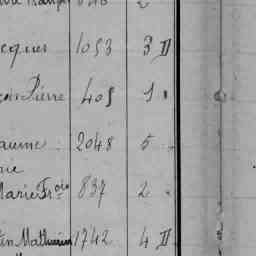 cques 1053 3 D
Pierre 405 1
aume 2048 5
rie
Marie Fr. 837 2
tin Mathurin 1742 4 D